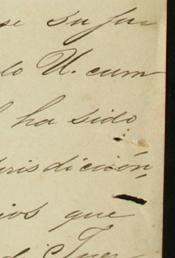 se su ju
lo U. cum
ha sido
risdicción
ios que